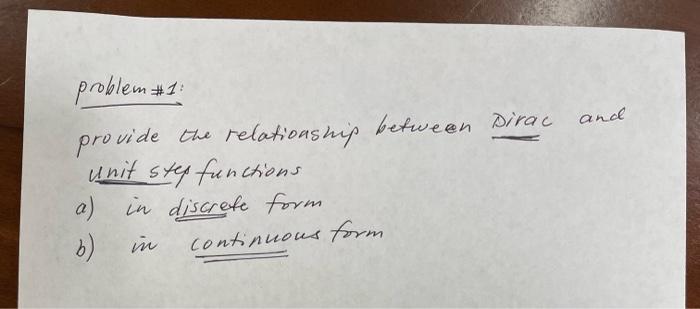 problem #1:
provide the relationship between Dirac and
unit step functions
a) in discrete form
b) in continuous form